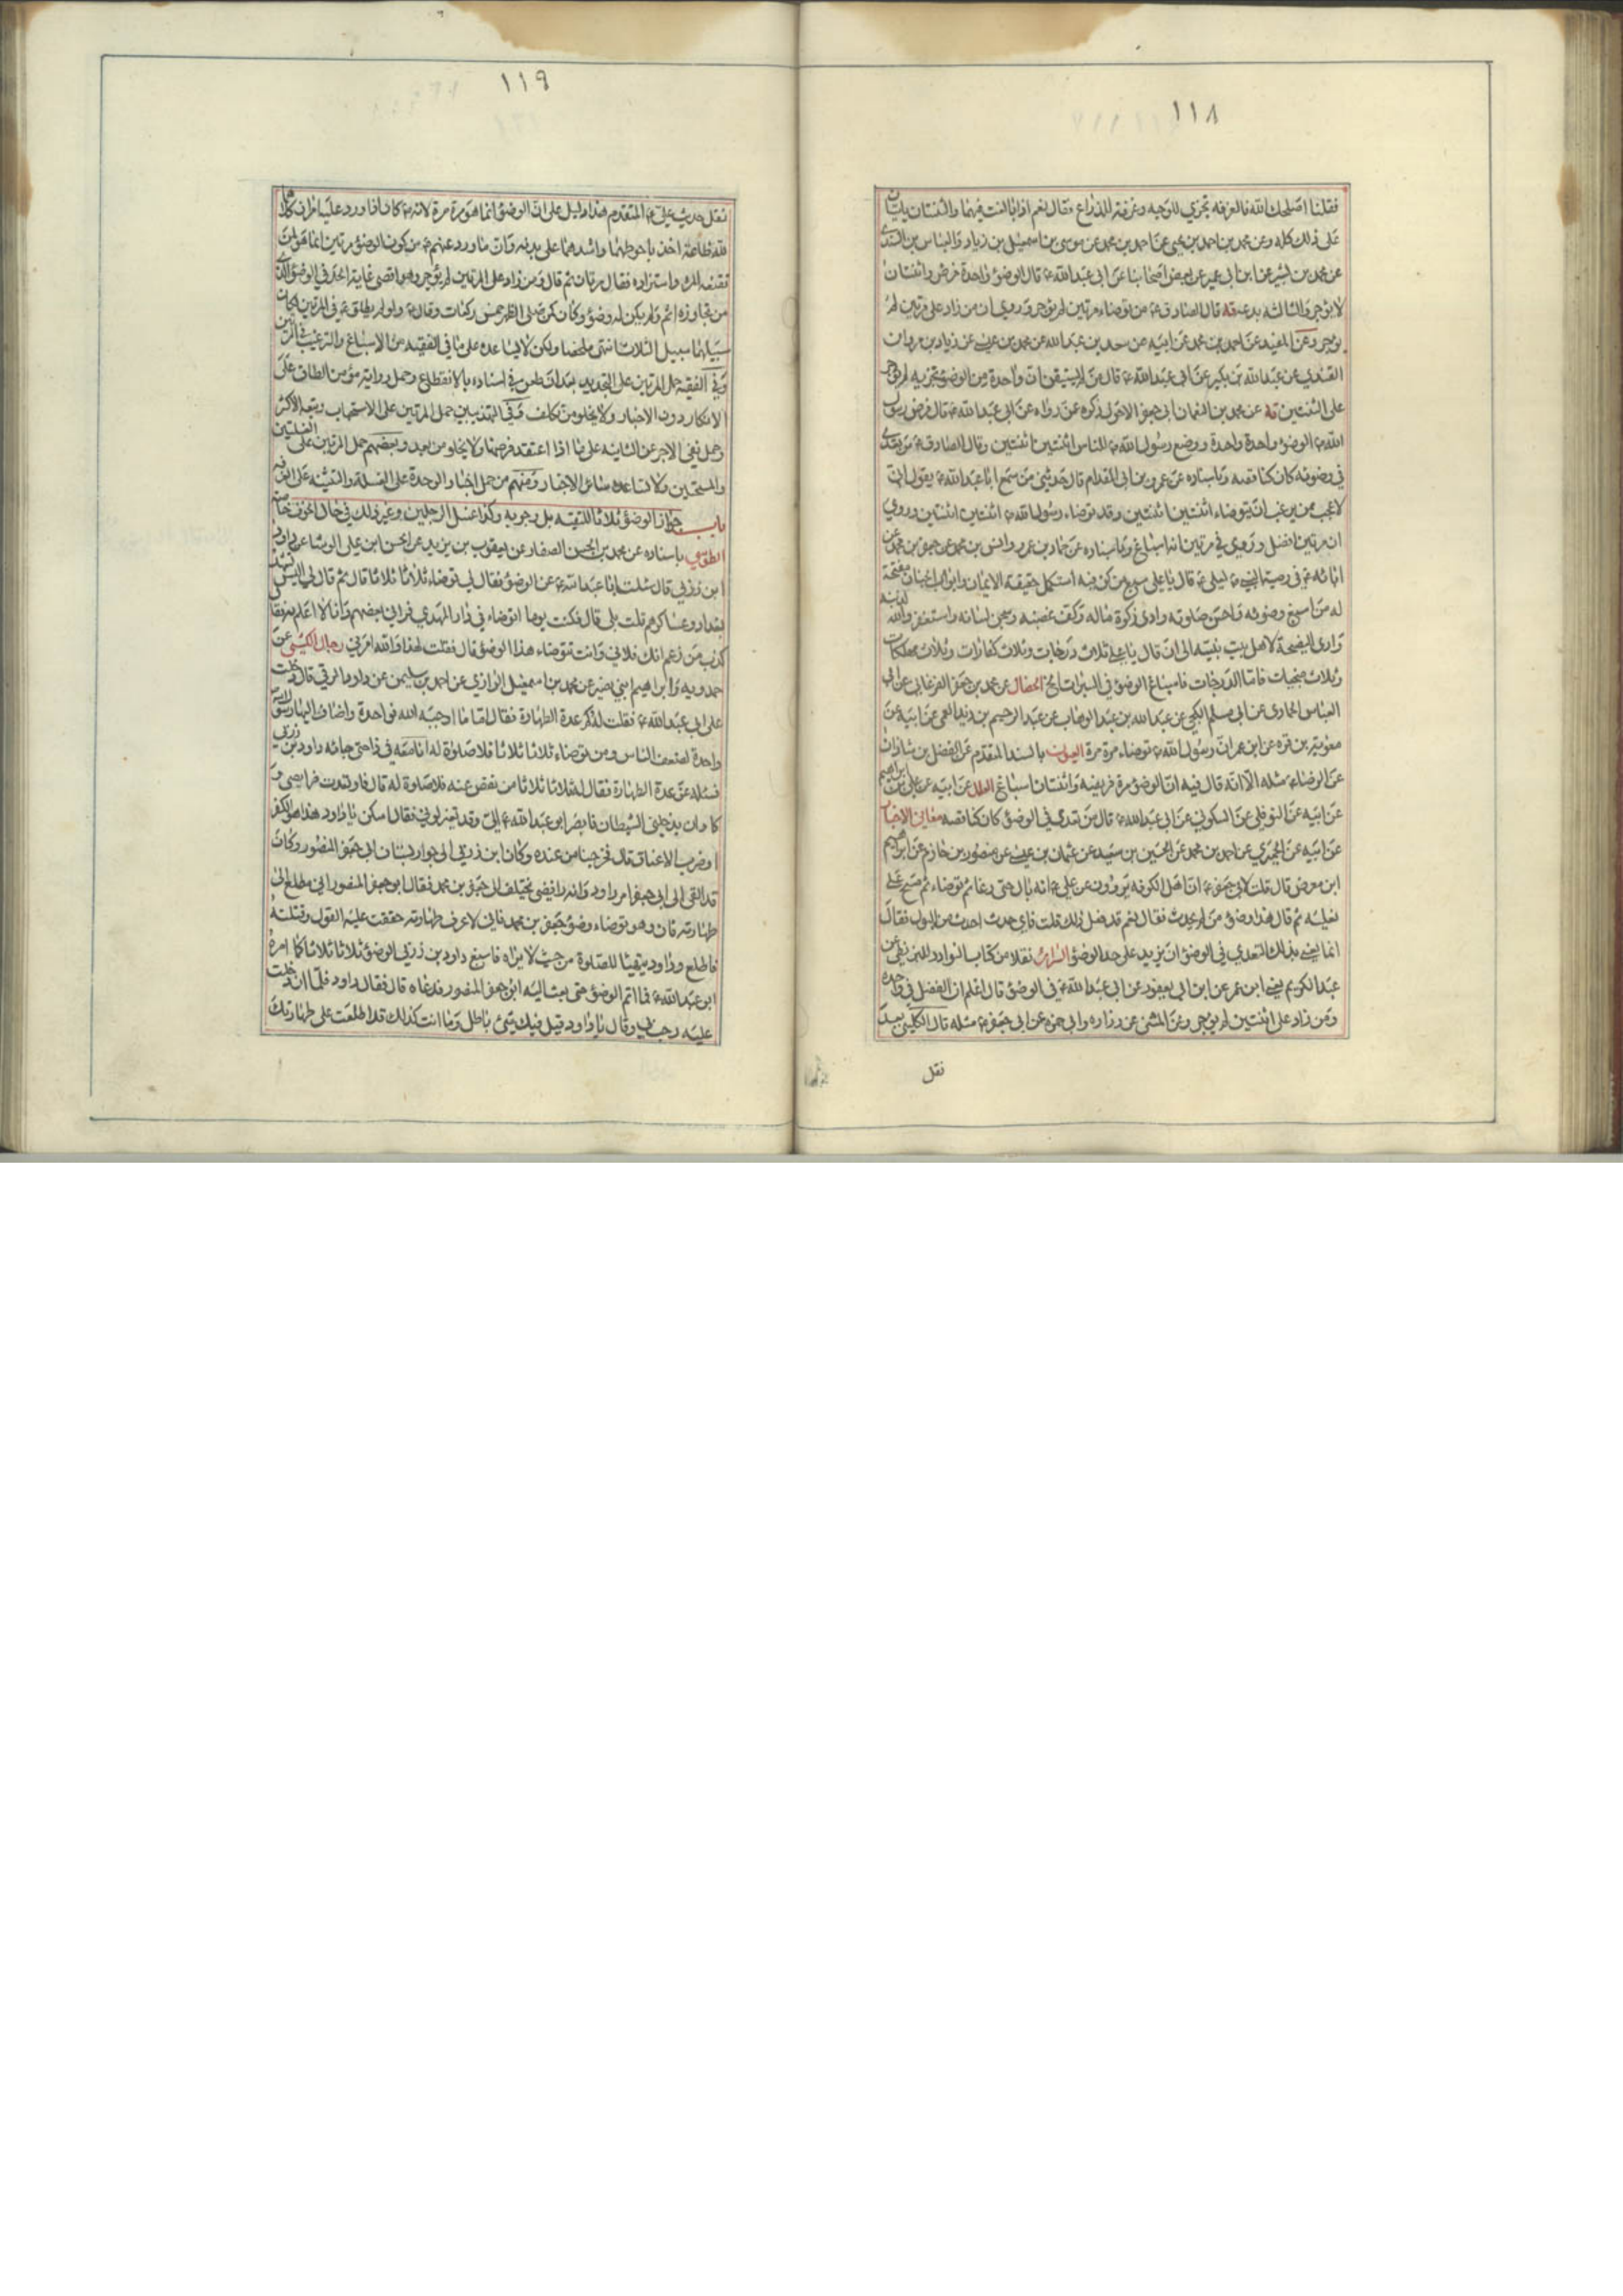 ١١٨
فقلنا اصلحك الله فالغرفة تجزي للوجه وغرفة للذراع فقال نعم اذا بالغت فيها والثنتان ياتيان
على ذلك كله وعن محمد بن احمد بن يحيى عن احمد بن محمد عن موسى بن اسمعيل بن زياد والعباس بن السندي
عن محمد بن بشير عن ابن ابي عمير عن بعض اصحابنا عن ابي عبد الله ع قال الوضوء واحدة فرض واثنتان
لا يوجر والثالثة بدعة قال الصادق ع من توضاء مرتين لم يوجر وروي ان من زاد على مرتين لم
يوجر وعن المفيد عن احمد بن محمد عن ابيه عن سعد بن عبد الله عن محمد بن عيسى عن زياد بن مروان
القندي عن عبد الله بن بكير عن ابي عبد الله ع قال من لم يستيقن ان واحدة من الوضوء تجزيه لم يوجر
على الثنتين عن محمد بن النعمان ابي جعفر الاحول ذكره عمن رواه عن ابي عبد الله ع قال فرض رسول
الله ص الوضوء واحدة واحدة ووضع رسول الله ص للناس اثنتين اثنتين وقال الصادق ع من تعدى
في وضوئه كان كناقصه وباسناده عن عمرو بن ابي المقدام قال حدثني من سمع ابا عبد الله ع يقول اني
لاعجب ممن يرغب ان يتوضاء اثنتين اثنتين وقد توضاء رسول الله ص اثنتين اثنتين وروي
ان مرتين افضل وروي في مرتين انه اسباغ وباسناده عن حماد بن عمرو وانس بن محمد عن جعفر بن محمد عن
ابائه ع في وصية النبي ص لعلي ع قال يا علي سبع من كن فيه استكمل حقيقة الايمان وابواب الجنان مفتحة
له من اسبغ وضوئه واحسن صلوته وادى زكوة ماله وكف غضبه وسجن لسانه واستغفر الله لذنبه
وادى النصيحة لاهل بيت نبيه الى ان قال يا علي ثلاث درجات وثلاث كفارات وثلاث مهلكات
وثلاث منجيات فاما الدرجات فاسباغ الوضوء في السبرات الخ الخصال عن محمد بن جعفر الفرغاني عن ابي
العباس الحمادي عن ابي مسلم الكجي عن عبد الله بن عبد الوهاب عن عبد الرحيم بن زيد العمي عن ابيه عن
معوية بن قره عن ابن عمر ان رسول الله ص توضاء مرة مرة العيون بالسند المتقدم عن الفضل بن شاذان
عن الرضا ع مثله الا انه قال فيه ان الوضوء مرة فريضة واثنتان اسباغ العلل عن ابيه عن علي بن ابراهيم
عن ابيه عن النوفلي عن السكوني عن ابي عبد الله ع قال من تعدى في الوضوء كان كناقصه معاني الاخبار
عن ابيه عن الحميري عن احمد بن محمد عن الحسين بن سعيد عن عثمان بن عيسى عن منصور بن حازم عن ابراهيم
ابن معرض قال قلت لابي جعفر ع ان اهل الكوفة يروون عن علي ع انه بال حتى رغا ثم توضاء ثم مسح على
نعليه ثم قال هذا وضوء من لم يحدث فقال نعم قد فعل ذلك قلت فاي حدث احدث من البول فقال
انما يعني بذلك التعدي في الوضوء ان يزيد على حد الوضوء السرائر نقلا من كتاب النوادر للبزنطي عن
عبد الكريم يعني ابن عمر عن ابن ابي يعفور عن ابي عبد الله ع في الوضوء قال اعلم ان الفضل في واحدة
ومن زاد على اثنتين لم يوجر وعن المثنى عن زرارة وابي حمزة عن ابي جعفر ع مثله قال الكليني بعد
نقل
١١٩
نقل حديث علي ع المتقدم هذا دليل على ان الوضوء انما هو مرة مرة لانه ع كان اذا ورد عليه امران كلاهما
لله طاعة اخذ باحوطهما واشدهما على بدنه وان ما ورد عنهم ع من كون الوضوء مرتين انما هو لمن
لم تقنعه المرة واستزاده فقال مرتان ثم قال ومن زاد على المرتين لم يوجر وهو اقصى غاية الحد في الوضوء الذي
من تجاوزه اثم ولم يكن له وضوء وكان كمن صلى الظهر خمس ركعات وقال ع ولو لم يطلق ع في المرتين لكان
سبيلهما سبيل الثلاث انتهى ملخصا ولكن لا يساعده على ما في الفقيه من الاسباغ والترغيب في المرتين
وفي الفقيه حمل المرتين على التجديد بعد ان طعن في اسناده بالانقطاع وحمل رواية مؤمن الطاق على
الانكار دون الاخبار ولا يخلو من تكلف وفي التهذيبين حمل المرتين على الاستحباب وتبعه الاكثر
وحمل نفي الاجر عن الثانية على ما اذا اعتقد فرضها ولا يخلو من بعد وبعضهم حمل المرتين على الغسلتين
والمسحتين ولا تساعده سائر الاخبار ومنهم من حمل اخبار الوحدة على الغسلة والتثنية على الغرفة
باب جواز الوضوء ثلاثا للتقية بل وجوبه وكذا غسل الرجلين وغير ذلك في حال الخوف خاصة
الطوسي باسناده عن محمد بن الحسن الصفار عن يعقوب بن يزيد عن الحسن ابن علي الوشا عن داود
ابن زربي قال سئلت ابا عبد الله ع عن الوضوء فقال لي توضاء ثلاثا ثلاثا قال ثم قال لي اليس تشهد
بغداد وعساكرهم قلت بلى قال فكنت يوما اتوضاء في دار المهدي فراني بعضهم وانا لا اعلم به فقال
كذب من زعم انك فلاني وانت تتوضاء هذا الوضوء قال فقلت لهذا والله امرني رجال الكشي عن
حمدويه وابراهيم ابني نصير عن محمد بن اسمعيل الرازي عن احمد بن سليمن عن داود الرقي قال دخلت
على ابي عبد الله ع فقلت له كم عدة الطهارة فقال اما ما اوجبه الله فواحدة واضاف اليها رسول الله ص
واحدة لضعف الناس ومن توضاء ثلاثا ثلاثا فلا صلوة له انا معه في ذا حتى جائه داود بن زربي
فسئله عن عدة الطهارة فقال له ثلاثا ثلاثا من نقص عنه فلا صلوة له قال فارتعدت فرايصي و
كاد ان يدخلني الشيطان فابصر ابو عبد الله ع الي وقد تغير لوني فقال اسكن يا داود هذا هو الكفر
او ضرب الاعناق قال فخرجنا من عنده وكان ابن زربي الى جوار بستان ابي جعفر المنصور وكان
قد القي الى ابي جعفر امر داود وانه رافضي يختلف الى جعفر بن محمد فقال ابو جعفر المنصور اني مطلع الى
طهارته فان هو توضاء وضوء جعفر بن محمد فاني لاعرف طهارته حققت عليه القول وقتلته
فاطلع وداود يتهيأ للصلوة من حيث لا يراه فاسبغ داود بن زربي الوضوء ثلاثا ثلاثا كما امره
ابو عبد الله ع فما اتم الوضوء حتى بعث اليه ابو جعفر المنصور فدعاه قال فقال داود فلما ان دخلت
عليه رحب بي وقال يا داود قيل فيك شئ باطل وما انت كذلك قد اطلعت على طهارتك